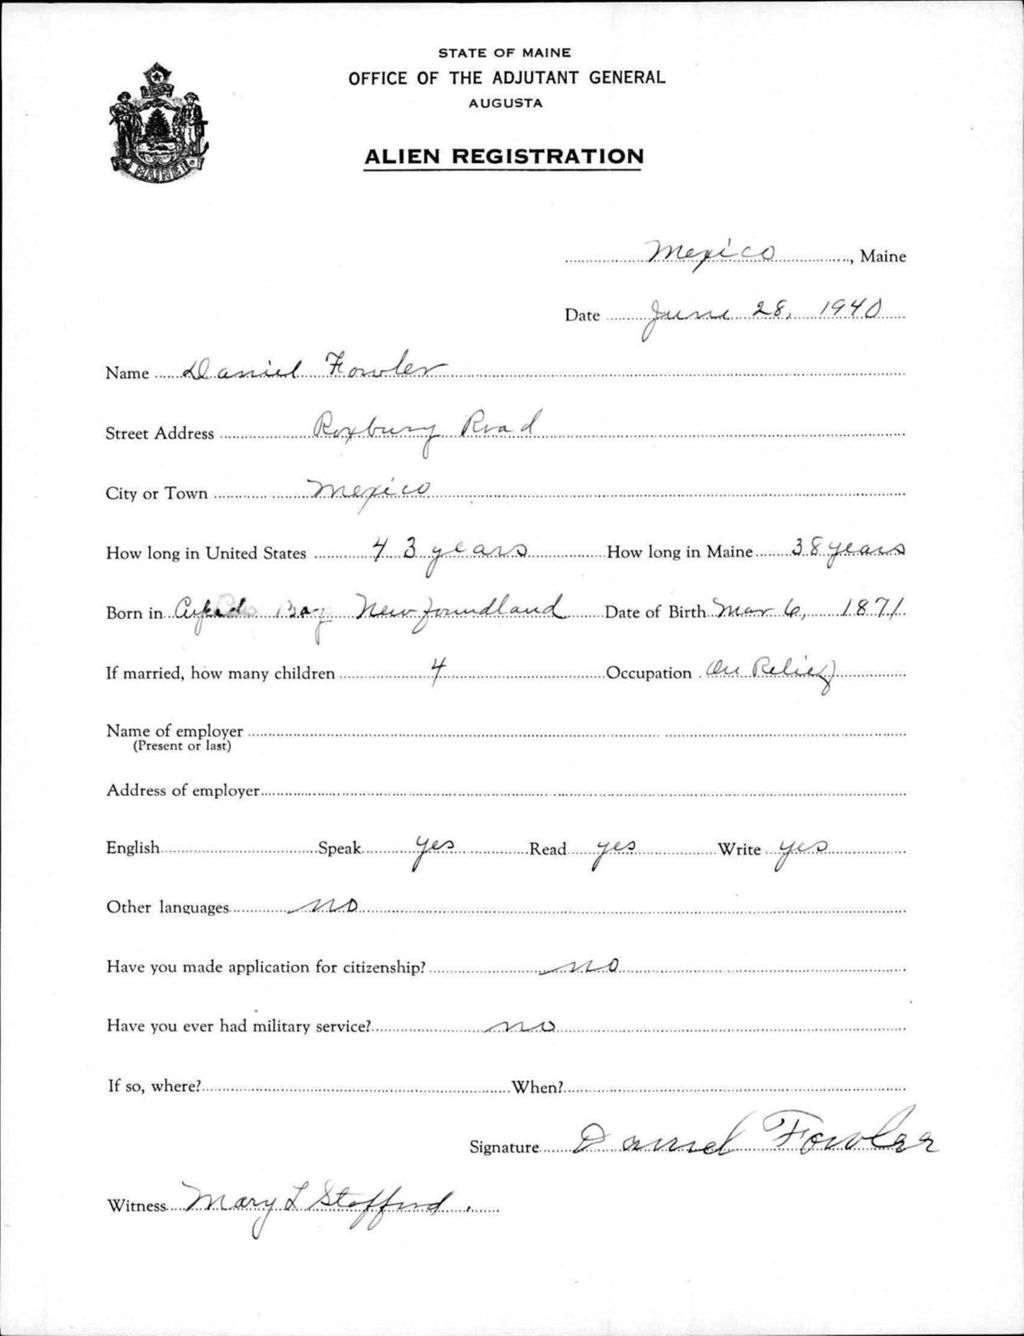 STATE OF MAINE
OFFICE OF THE ADJUTANT GENERAL
AUGUSTA
ALIEN REGISTRATION
MAINE
Mexico, Maine
Date June 28, 1940
Name Daniel Fowler
Street Address Roxbury Road
City or Town Mexico
How long in United States 43 years How long in Maine 38 years
Born in Bay Newfoundland Date of Birth Mar 6, 1871
If married, how many children 4 Occupation On Relief
Name of employer
(Present or last)
Address of employer
English Speak yes Read yes Write yes
Other languages no
Have you made application for citizenship? no
Have you ever had military service? no
If so, where? When?
Signature Daniel Fowler
Witness Mary L Stafford.